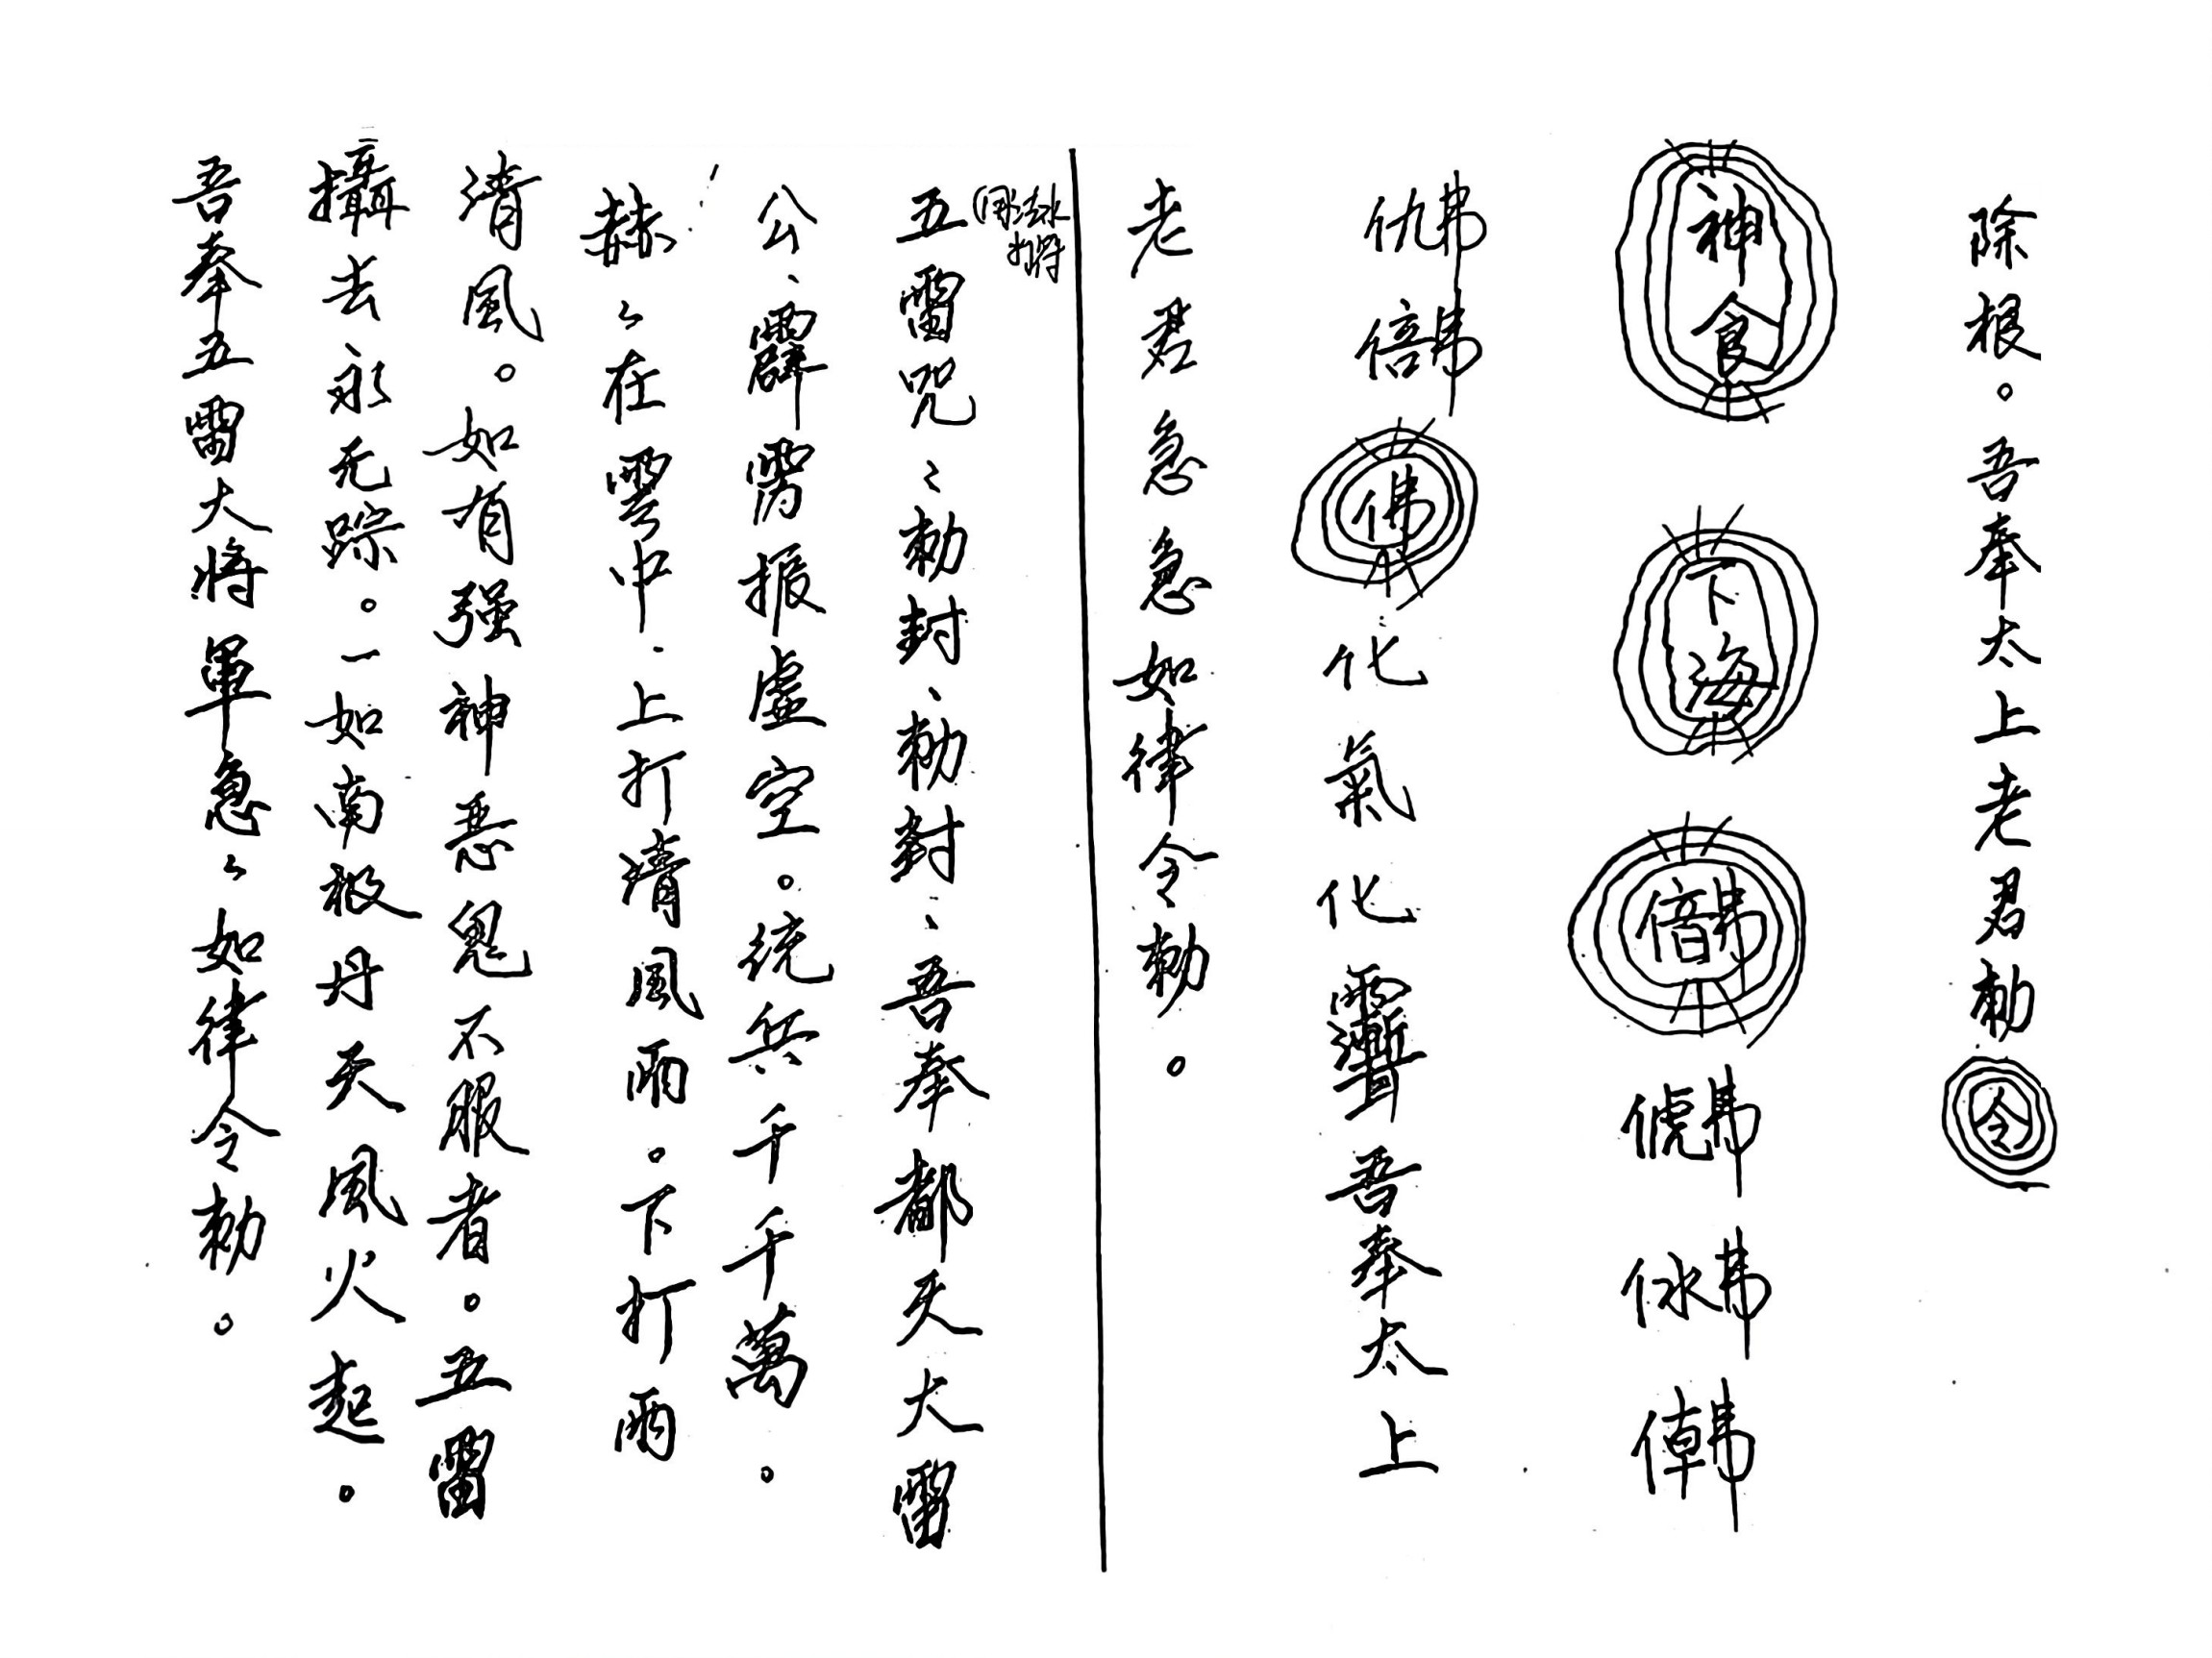 除根。吾奉太上老君勅令
神食 下海
佛 化氣化 吾奉太上
老君急急如律令勅。
(用法水打符
五雷咒:勅封、勅封:吾奉都天大雷
公、霹雳振虚空。统兵千千千萬。
赫々在雲中.上打清風雨.下打雨
清風。如有强神恶鬼不服者。五雷
攝去永无踪。一如南极丹天風火起。
吾奉五雷大將軍急々如律令勅。